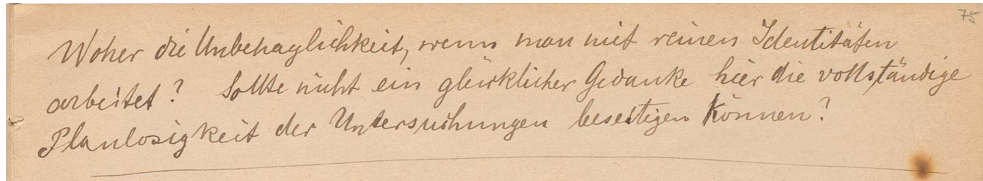 75
Woher die Unbehaglichkeit, wenn man mit reinen Identitäten
arbeitet? Sollte nicht ein glücklicher Gedanke hier die vollständige
Planlosigkeit der Untersuchungen beseitigen können?